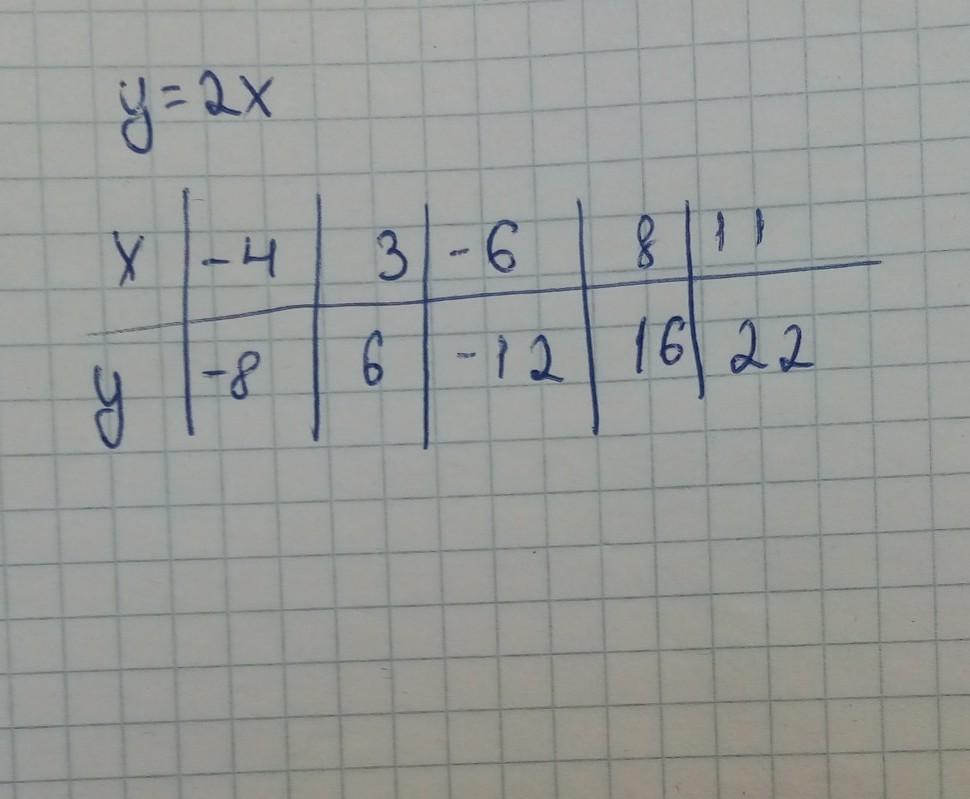 y=2x
x -4 3 -6 8 11
y -8 6 -12 16 22